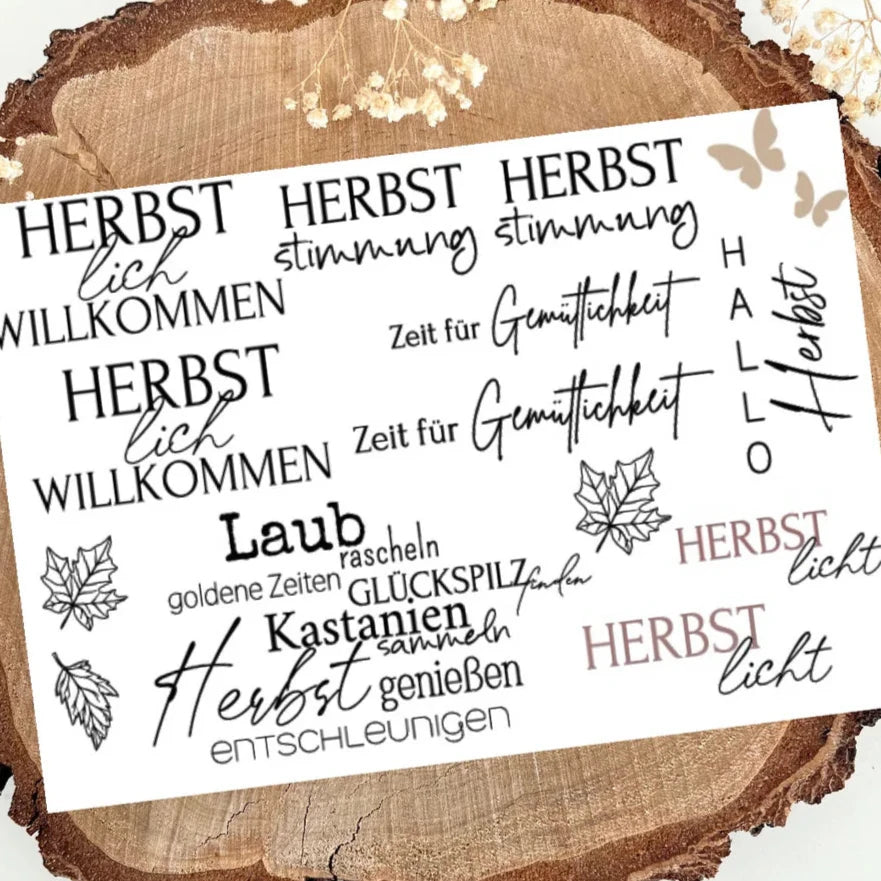 HERBST
lich
WILLKOMMEN
HERBST
stimmung
HERBST
stimmung
Zeit für Gemütlichkeit
HALLO
Herbst
HERBST
lich
WILLKOMMEN
Zeit für Gemütlichkeit
Laub
rascheln
goldene Zeiten
GLÜCKSPILZ finden
Kastanien
sammeln
Herbst genießen
entschleunigen
HERBST
licht
HERBST
licht